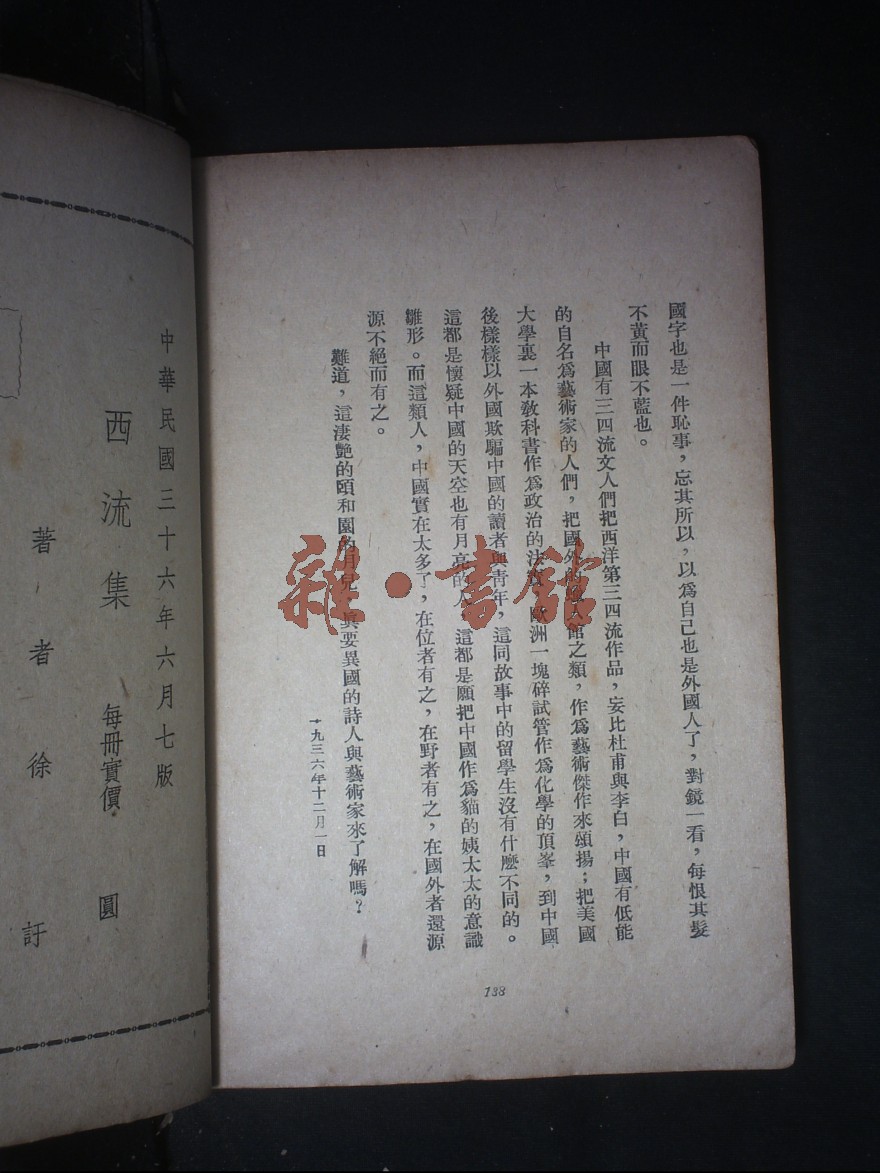 國字也是一件恥事，忘其所以，以爲自己也是外國人了，對鏡一看，每恨其髮
不黃而眼不藍也。
中國有三四流文人們把西洋第三四流作品，妄比杜甫與李白，中國有低能
的自名爲藝術家的人們，把國外的 館之類，作爲藝術傑作來頌揚；把美國
大學裏一本敎科書作爲政治的法 歐洲一塊碎試管作爲化學的頂峯，到中國
後樣樣以外國欺騙中國的讀者與青年，這同故事中的留學生沒有什麼不同的。
這都是懷疑中國的天空也有月亮的人，這都是願把中國作爲貓的姨太太的意識
雛形。而這類人，中國實在太多了，在位者有之，在野者有之，在國外者還源
源不絕而有之。
難道，這淒艷的頤和園的月兒，眞要異國的詩人與藝術家來了解嗎？
一九三六年十二月一日
138
中華民國三十六年六月七版
西流集 每冊實價 圓
著者 徐訏
雜·書館